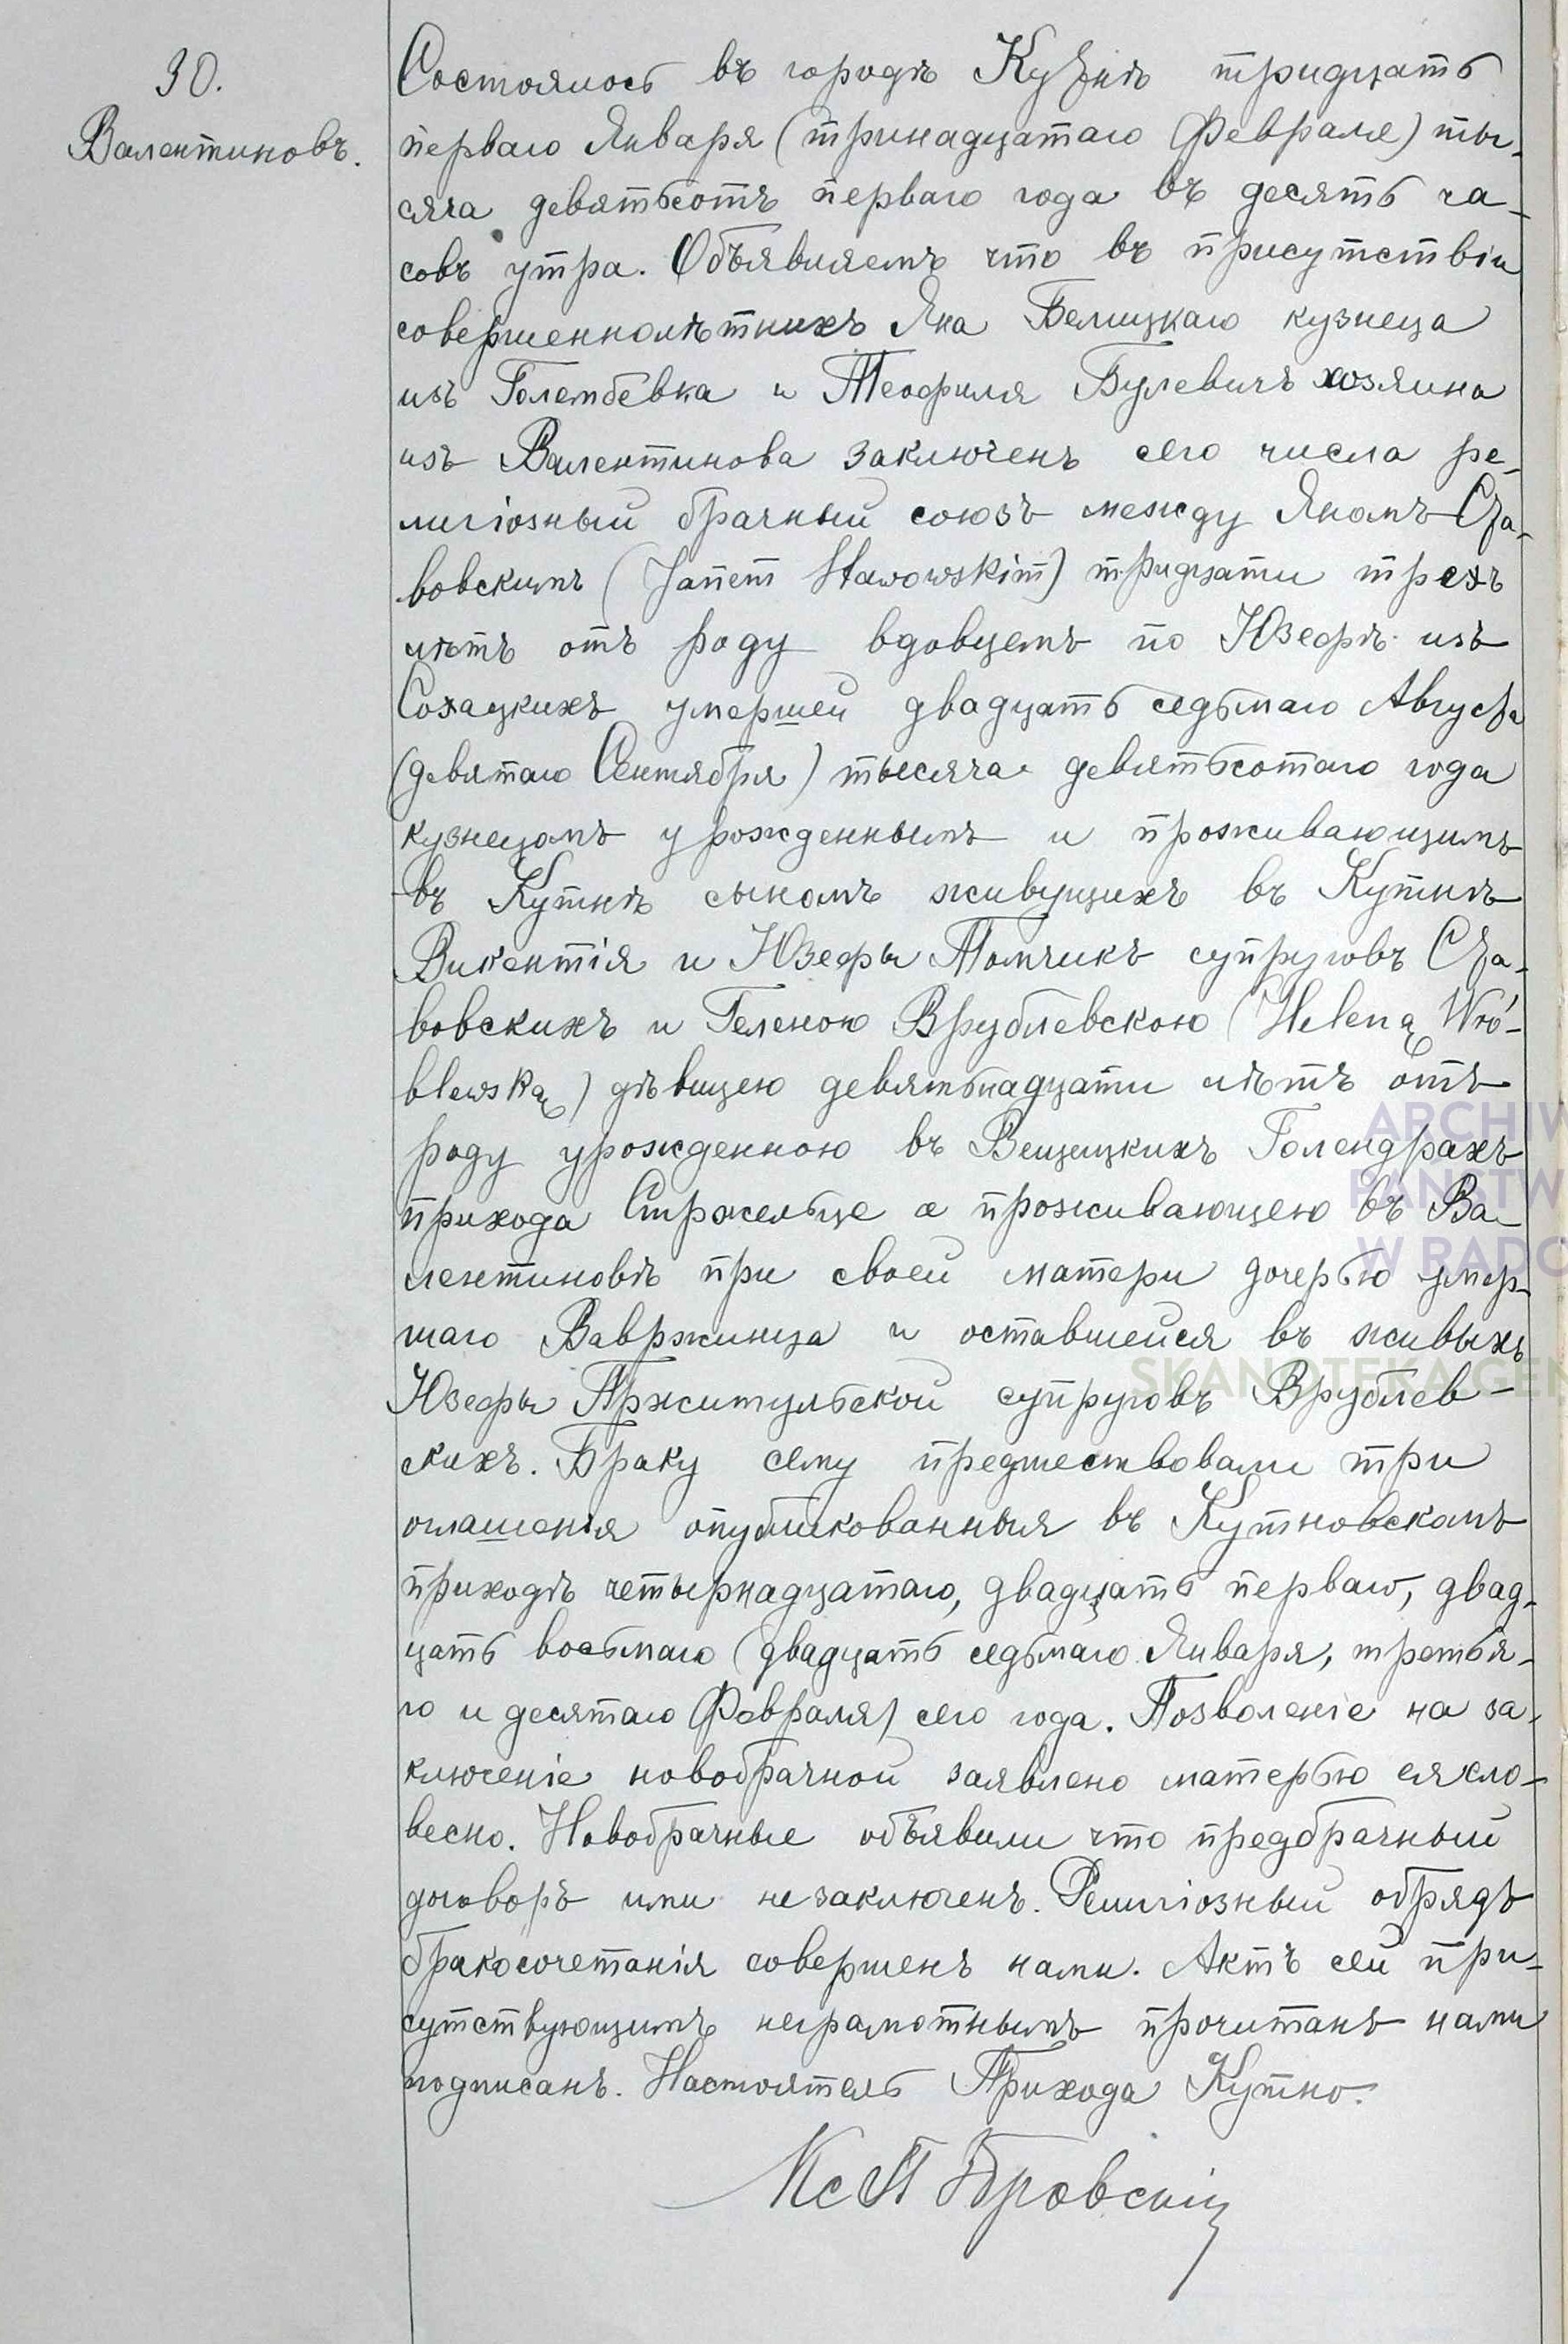 30.
Валентиновъ.
Состоялось въ городѣ Кутнѣ тридцать
перваго Января (тринадцатаго Февраля) ты-
сяча девятьсотъ перваго года въ десять ча-
совъ утра. Объявляемъ что въ присутствіи
совершеннолѣтнихъ Яна Белицкаго кузнеца
изъ Голембевка и Теофиля Булевичъ хозяина
изъ Валентинова заключенъ сего числа ре-
лигіозный брачный союзъ между Яномъ Ста-
вовскимъ (Janem Stawowskim) тридцати трехъ
лѣтъ отъ роду вдовцемъ по Юзефѣ изъ
Сохацкихъ умершей двадцать седьмаго Августа
(девятаго Сентября) тысяча девятьсотаго года
кузнецомъ урожденнымъ и проживающимъ
въ Кутнѣ сыномъ живущихъ въ Кутнѣ
Викентія и Юзефы Томчикъ супруговъ Ста-
вовскихъ и Геленою Врублевскою (Heleną Wró-
blewską) дѣвицею девятьнадцати лѣтъ отъ
роду урожденною въ Вещицкихъ Голендрахъ
прихода Стржельце а проживающею въ Ва-
лентиновѣ при своей матери дочерью умер-
шаго Вавржинца и оставшейся въ живыхъ
Юзефы Пржитульской супруговъ Врублев-
скихъ. Браку сему предшествовали три
оглашенія опубликованныя въ Кутновскомъ
приходѣ четырнадцатаго, двадцать перваго, двад-
цать восьмаго (двадцать седьмаго Января, третья-
го и десятаго Февраля) сего года. Позволеніе на за-
ключеніе новобрачной заявлено матерью ея сло-
весно. Новобрачные объявили что предбрачный
договоръ ими незаключенъ. Религіозный обрядъ
бракосочетанія совершенъ нами. Актъ сей при-
сутствующимъ неграмотнымъ прочитанъ нами
подписанъ. Настоятель Прихода Кутно.
ARCHIW
PAŃSTW
W RADO
SKANOTEKA GEN